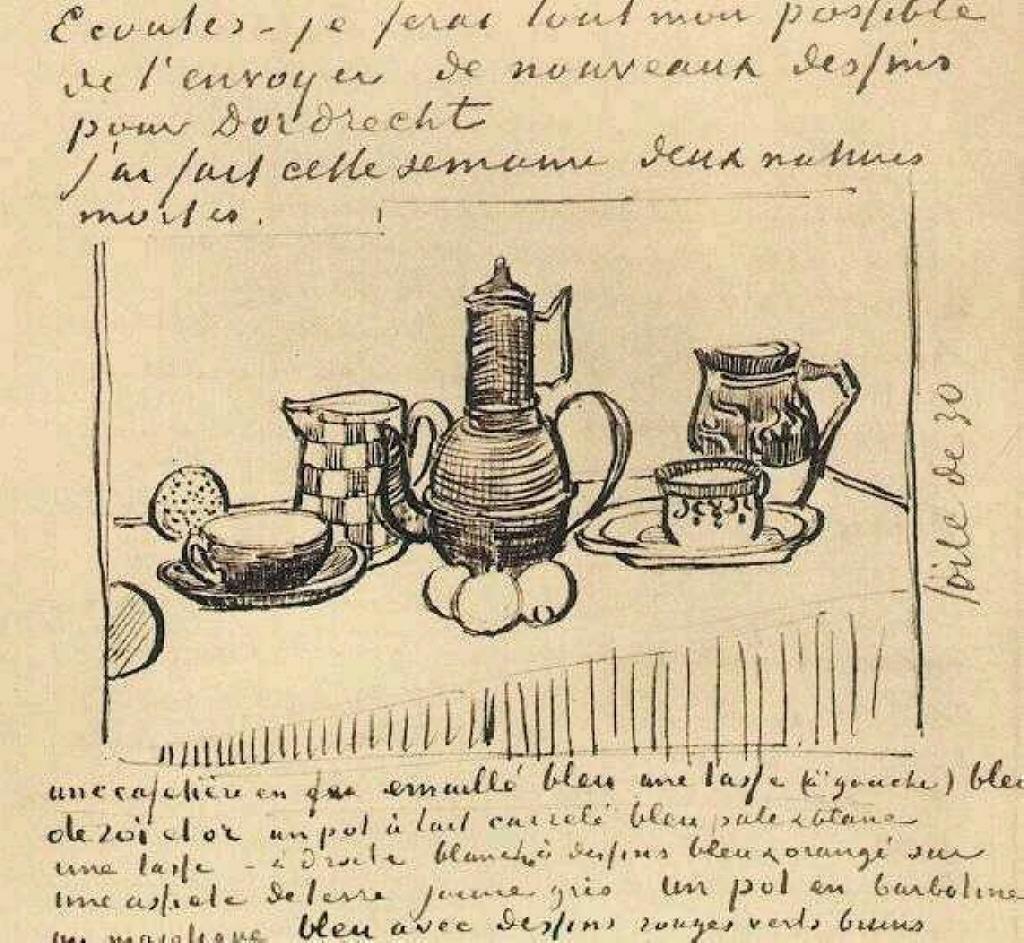 Ecoutes - je ferai tout mon possible
de t'envoyer de nouveaux dessins
pour Dordrecht
J'ai fait cette semaine deux natures
mortes.
Toile de 30
une cafetière en fer emaillé bleu une tasse (à gauche) bleu
de roi et or un pot à lait carrelé bleu pale & blanc
une tasse - à droite blanche à dessins bleu & orangé sur
une assiete de terre jaune gris un pot en barbotine
ou majolique bleu avec dessins rouges verts bruns